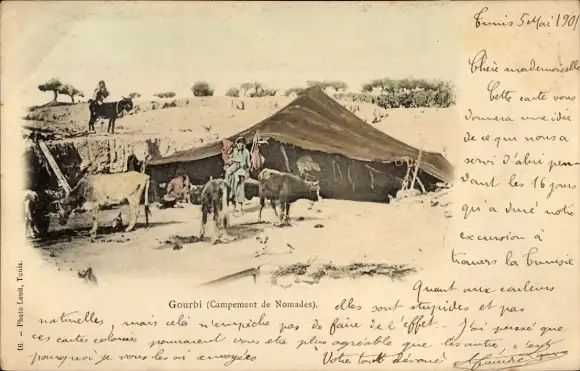 Tunis 5 Mai 1901
Chère mademoiselle
Cette carte vous
donnera une idée
de ce qui nous a
servi d'abri pen-
dant les 16 jours
qu'a duré notre
excursion à
travers la Tunisie
Quant aux couleurs
Gourbi (Campement de Nomades).
elles sont stupides et pas
naturelles, mais celà n'empèche pas de faire de l'effet. J'ai pensé que
ces cartes coloriés pourraient vous être plus agréable que les autres, c'est
pourquoi je vous les ai envoyées
Votre tout dévoué
16. - Photo Louit, Tunis.